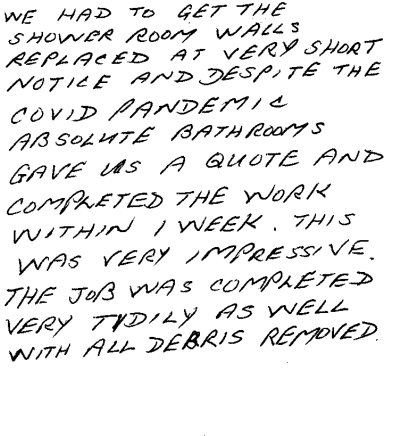 WE HAD TO GET THE
SHOWER ROOM WALLS
REPLACED AT VERY SHORT
NOTICE AND DESPITE THE
COVID PANDEMIC
ABSOLUTE BATHROOMS
GAVE US A QUOTE AND
COMPLETED THE WORK
WITHIN 1 WEEK. THIS
WAS VERY IMPRESSIVE.
THE JOB WAS COMPLETED
VERY TIDILY AS WELL
WITH ALL DEBRIS REMOVED.